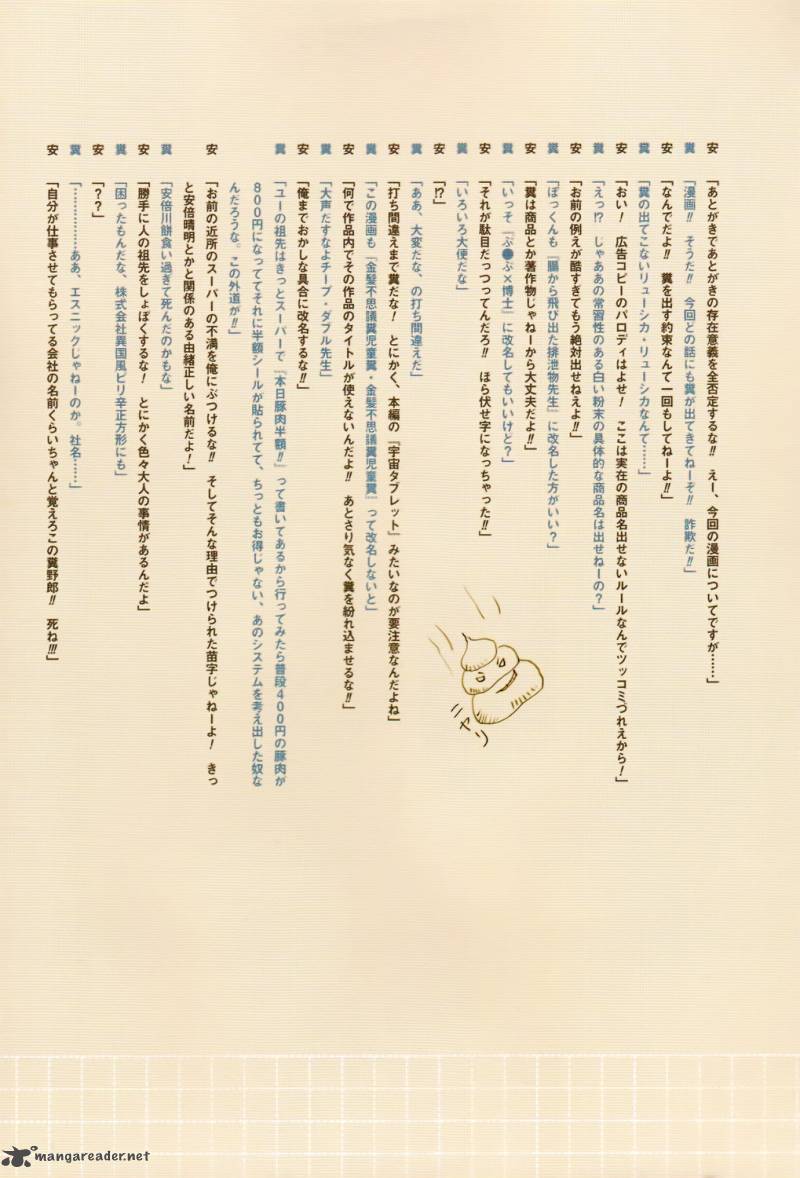 安「あとがきであとがきの存在意義を全否定するな!! えー、今回の漫画についてですが……」
糞「漫画!! そうだ!! 今回との話にも糞が出てきてねーぞ!! 詐欺だ!!」
安「なんでだよ!! 糞を出す約束なんて一回もしてねーよ!!」
糞「糞の出てこないリューシカ・リューシカなんて……」
安「おい! 広告コピーのパロディはよせ! ここは実在の商品名出せないルールなんでツッコミづれえから!」
糞「えっ!? じゃああの常習性のある白い粉末の具体的な商品名は出せねーの?」
安「お前の例えが酷すぎてもう絶対出せねえよ!!」
糞「ぼっくんも『腸から飛び出た排泄物先生』に改名した方がいい?」
安「糞は商品とか著作物じゃねーから大丈夫だよ!!」
糞「いっそ『ぷ●ぷ×博士』に改名してもいいけど?」
安「それが駄目だっつってんだろ!! ほら伏せ字になっちゃった!!」
糞「いろいろ大便だな」
安「!?」
糞「ああ、大変だな、の打ち間違えだ」
安「打ち間違えまで糞だな! とにかく、本編の『宇宙タブレット』みたいなのが要注意なんだよね」
糞「この漫画も『金髪不思議糞児童糞・金髪不思議糞児童糞』って改名しないと」
安「何で作品内でその作品のタイトルが使えないんだよ!! あとさり気なく糞を紛れ込ませるな!!」
糞「大声だすなよチープ・ダブル先生」
安「俺までおかしな具合に改名するな!!」
糞「ユーの祖先はきっとスーパーで『本日豚肉半額!!』って書いてあるから行ってみたら普段400円の豚肉が
800円になっててそれに半額シールが貼られてて、ちっともお得じゃない、あのシステムを考え出した奴な
んだろうな。この外道が!!」
安「お前の近所のスーパーの不満を俺にぶつけるな!! そしてそんな理由でつけられた苗字じゃねーよ! きっ
と安倍晴明とかと関係のある由緒正しい名前だよ!」
糞「安倍川餅食い過ぎて死んだのかもな」
安「勝手に人の祖先をしょぼくするな! とにかく色々大人の事情があるんだよ」
糞「困ったもんだな、株式会社異国風ピリ辛正方形にも」
安「??」
糞「……………ああ、エスニックじゃねーのか。社名……」
安「自分が仕事させてもらってる会社の名前くらいちゃんと覚えろこの糞野郎!! 死ね!!!」
ニヤリ
mangareader.net